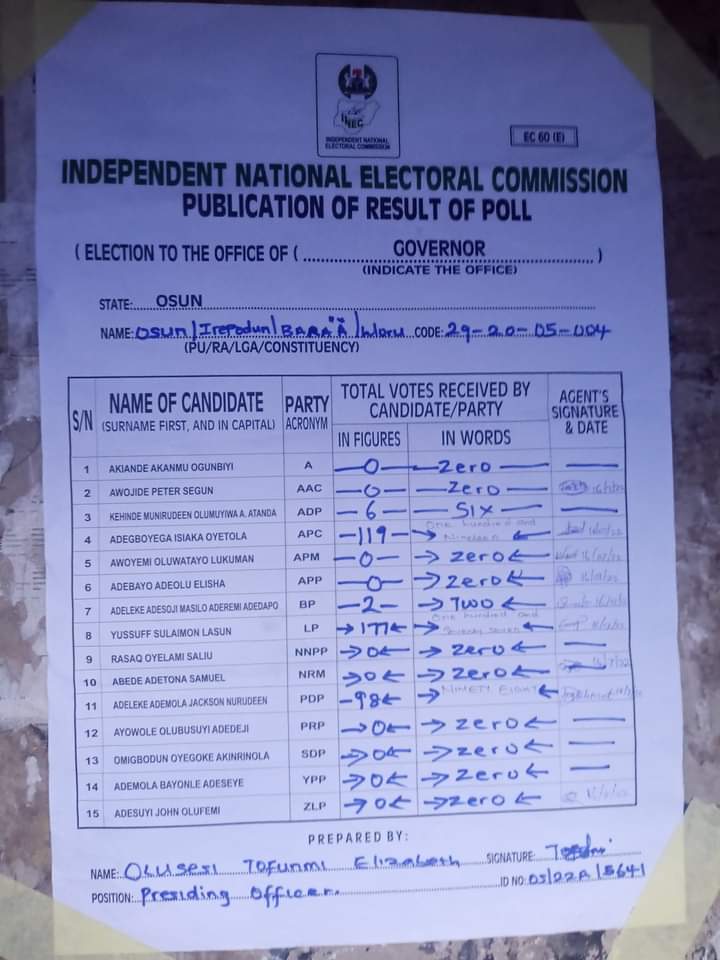 INEC
INDEPENDENT NATIONAL
ELECTORAL COMMISSION
EC 60 (E)
INDEPENDENT NATIONAL ELECTORAL COMMISSION
PUBLICATION OF RESULT OF POLL
( ELECTION TO THE OFFICE OF ( GOVERNOR )
(INDICATE THE OFFICE)
STATE: OSUN
NAME: OSUN/Irepodun/BARA'A/ CODE: 29-20-05-004
(PU/RA/LGA/CONSTITUENCY)
S/N NAME OF CANDIDATE (SURNAME FIRST, AND IN CAPITAL) PARTY ACRONYM TOTAL VOTES RECEIVED BY CANDIDATE/PARTY AGENT'S SIGNATURE & DATE
IN FIGURES IN WORDS
1 AKIANDE AKANMU OGUNBIYI A —0— —Zero—
2 AWOJIDE PETER SEGUN AAC —0— —Zero—
3 KEHINDE MUNIRUDEEN OLUMUYIWA A. ATANDA ADP —6— —SIX—
4 ADEGBOYEGA ISIAKA OYETOLA APC —119— → One hundred and Nineteen ←
5 AWOYEMI OLUWATAYO LUKUMAN APM —0— → zero ←
6 ADEBAYO ADEOLU ELISHA APP —0— → zero ←
7 ADELEKE ADESOJI MASILO ADEREMI ADEDAPO BP —2— → TWO ←
8 YUSSUFF SULAIMON LASUN LP → 177 ← → One hundred and Seventy seven ←
9 RASAQ OYELAMI SALIU NNPP → 0 ← → zero ←
10 ABEDE ADETONA SAMUEL NRM → 0 ← → zero ←
11 ADELEKE ADEMOLA JACKSON NURUDEEN PDP — 98 ← → NINETY EIGHT ←
12 AYOWOLE OLUBUSUYI ADEDEJI PRP → 0 ← → zero ←
13 OMIGBODUN OYEGOKE AKINRINOLA SDP → 0 ← → zero ←
14 ADEMOLA BAYONLE ADESEYE YPP → 0 ← → zero ←
15 ADESUYI JOHN OLUFEMI ZLP → 0 ← → zero ←
PREPARED BY:
NAME: OLUSESI TOFUNMI Elizabeth SIGNATURE:
POSITION: Presiding Officer. ID NO: OS/22A/5641